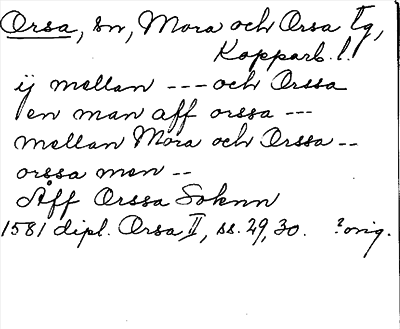 Orsa, sn, Mora och Orsa tg,
Kopparb. l.
ij mellan --- och Orssa
en man aff orssa ---
mellan Mora och Orssa --
orssa men --
Åff Orssa Soknn
1581 dipl. Orsa II, ss. 29, 30. ?orig.